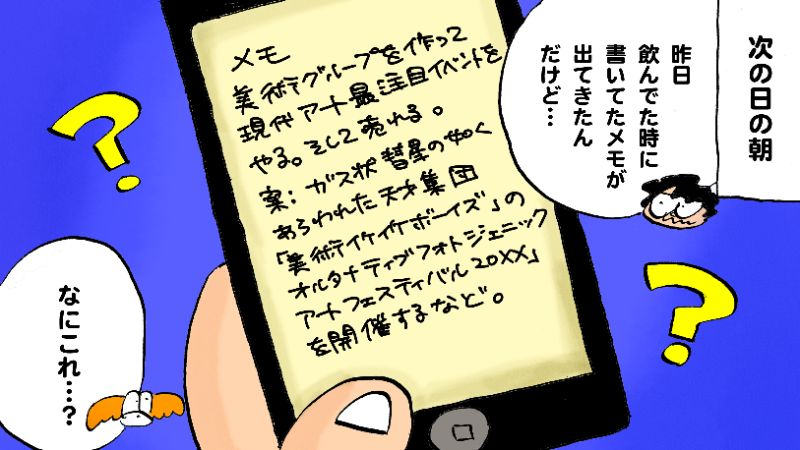 次の日の朝
昨日
飲んでた時に
書いてたメモが
出てきたん
だけど…
メモ
美術手グループを作って
現代アート最注目イベントを
やる。そして売れる。
案：ガス状彗星の如く
あらわれた天才集団
「美術手イケイケボーイズ」の
オルタナティブフォトジェニック
アートフェスティバル20XX」
を開催するなど。
なにこれ…．？
?
?